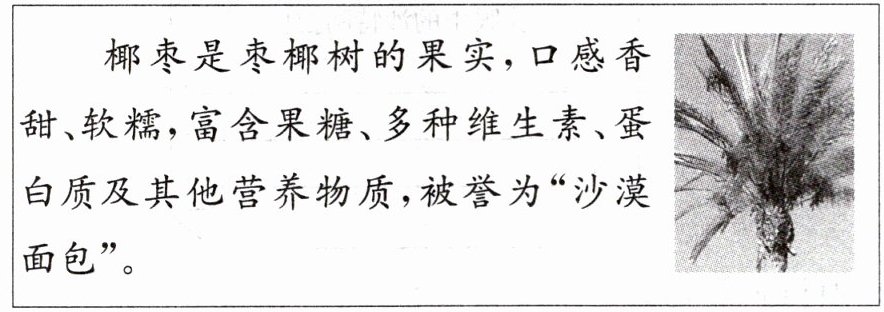 椰枣是枣椰树的果实，口感香
甜、软糯，富含果糖、多种维生素、蛋
白质及其他营养物质，被誉为“沙漠
面包”。